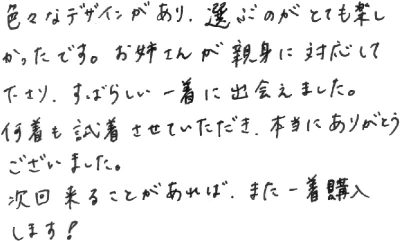 色々なデザインがあり、選ぶのがとても楽し
かったです。お姉さんが親身に対応して
下さり、すばらしい一着に出会えました。
何着も試着させていただき、本当にありがとう
ございました。
次回来ることがあれば、また一着購入
します!